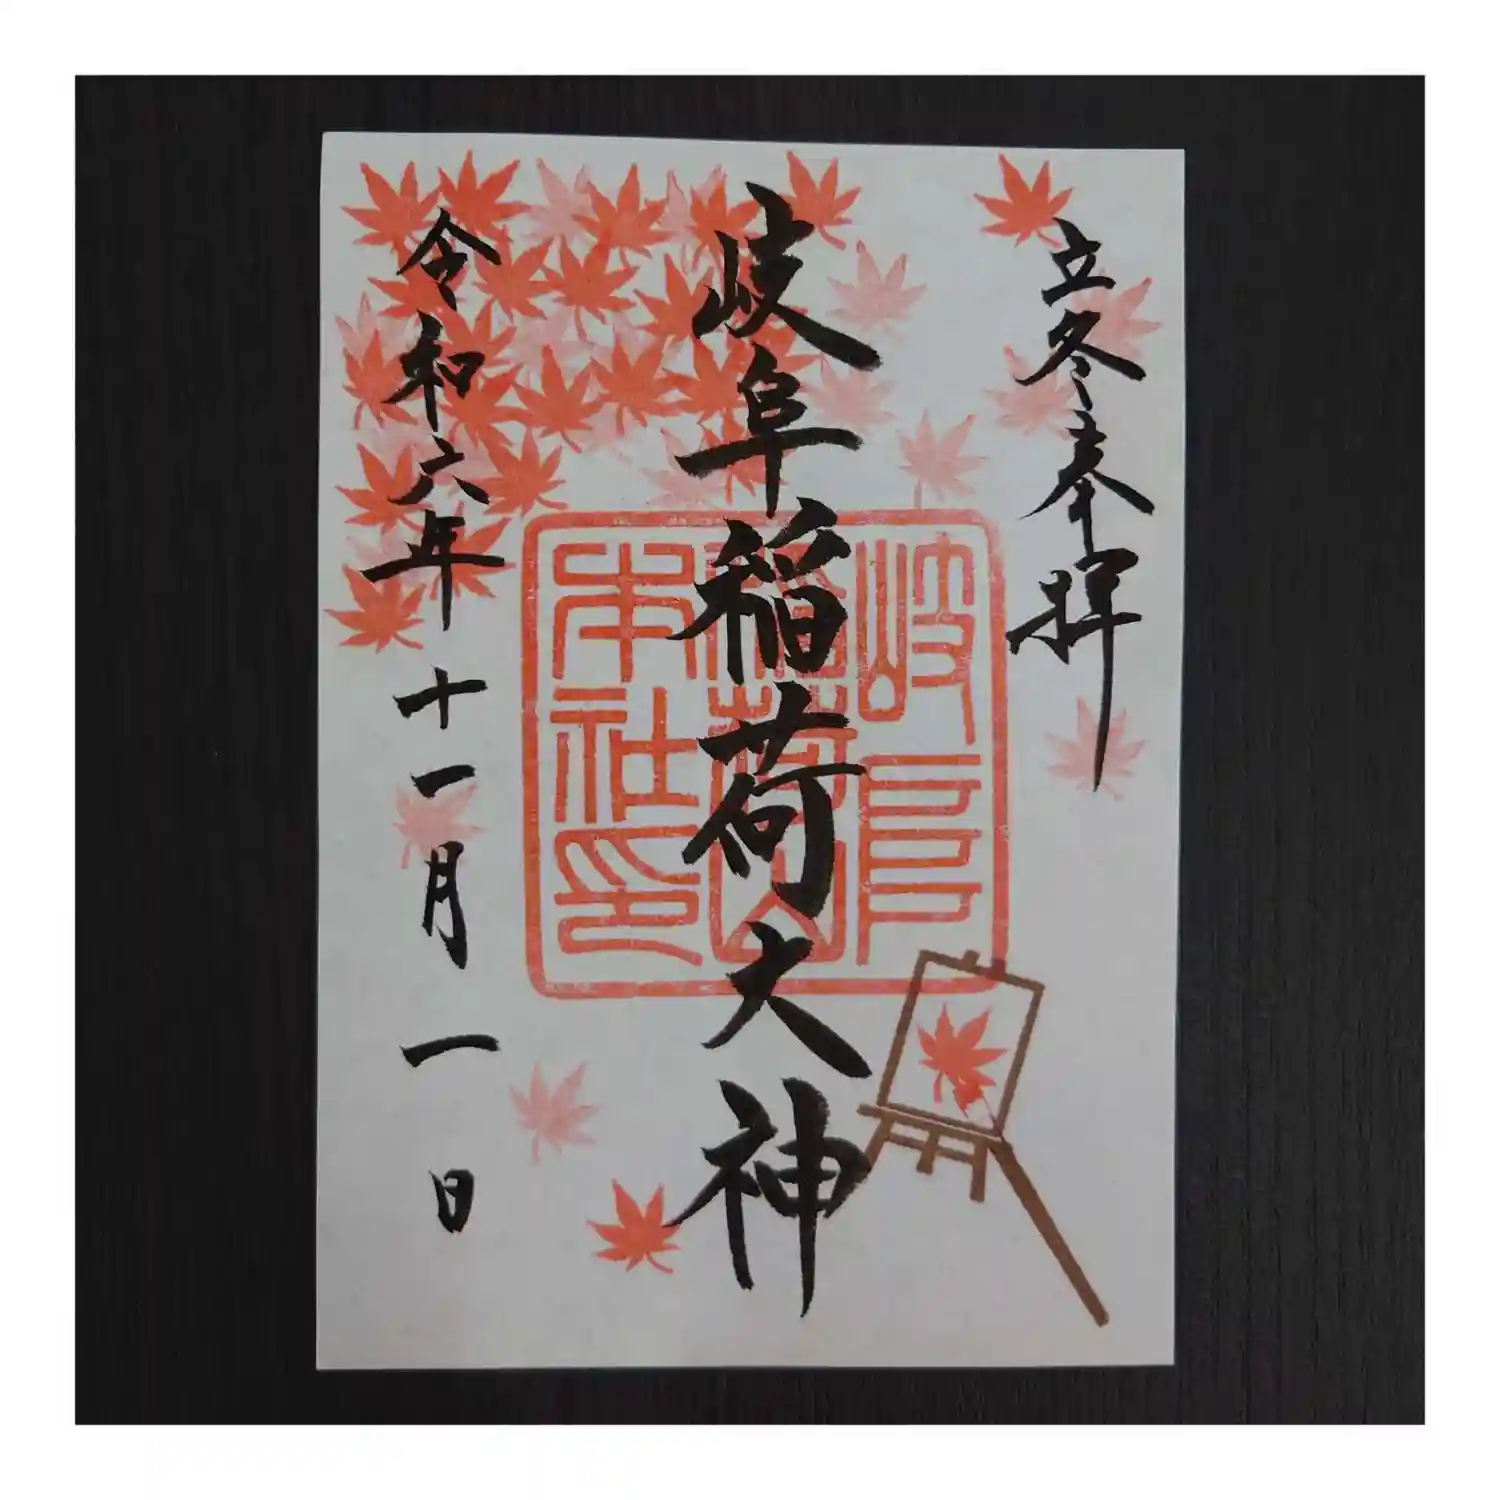 立冬奉拝
岐阜稲荷大神
岐阜
稲荷山
本社印
令和六年十一月一日